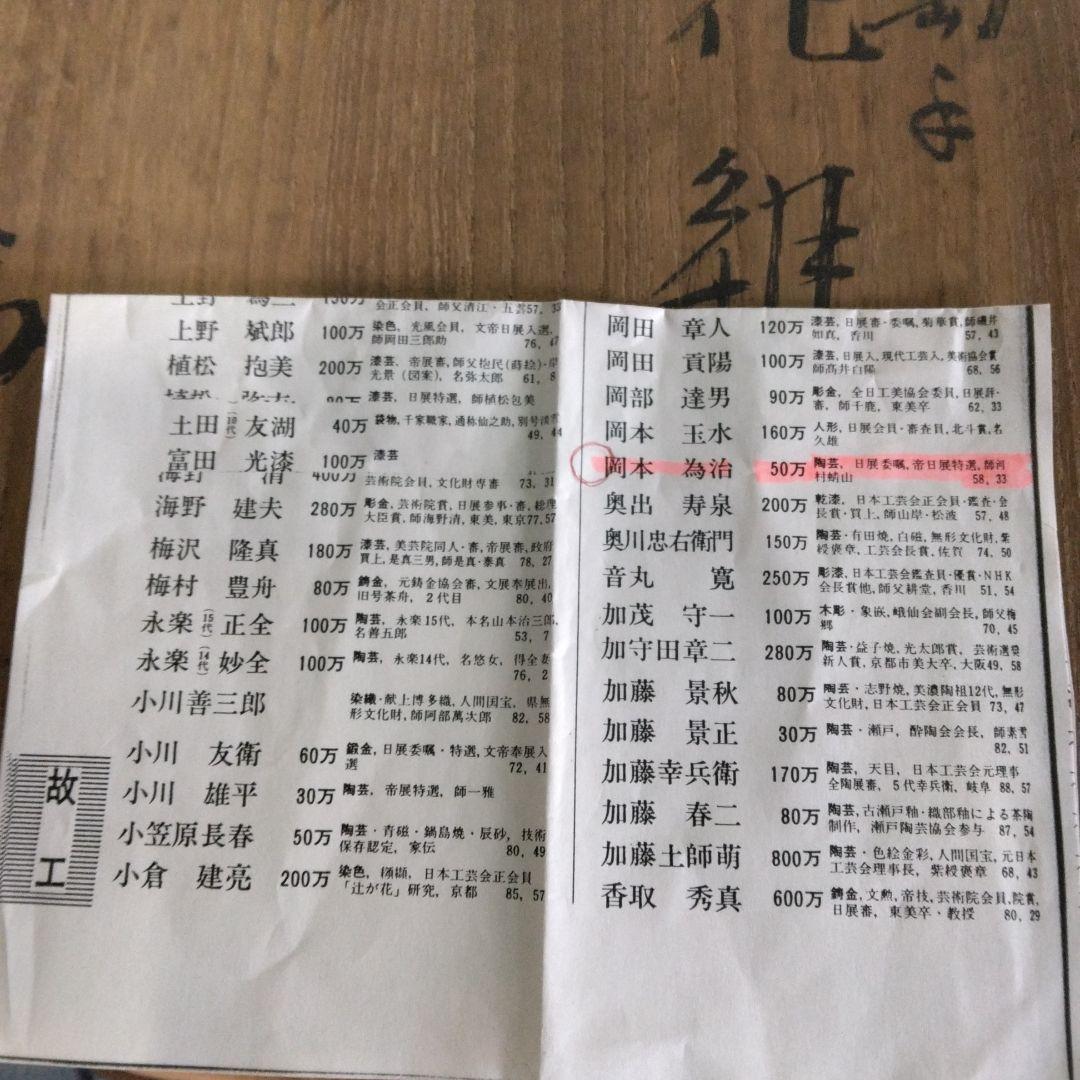 上野 為二 150万
会正会員, 師父清江・五雲57, 33
上野 斌郎 100万 染色, 光風会員, 文帝日展入選,
師岡田三郎助 76, 47
植松 抱美 200万 漆芸, 帝展審, 師父抱民(蒔絵)・岸
光景 (図案), 名弥太郎 61, 8
漆芸, 日展特選, 師植松包美
土田(10代)友湖 40万 袋物, 千家職家, 通称仙之助, 別号淡斉
49, 44
富田 光漆 100万 漆芸
海野 清 400万
芸術院会員, 文化財専審 73, 31
海野 建夫 280万 彫金, 芸術院賞, 日展参事・審, 総理
大臣賞, 師海野清, 東美, 東京77, 57
梅沢 隆真 180万 漆芸, 美芸院同人・審, 帝展審, 政府
買上, 是真三男, 師是真・泰真 78, 27
梅村 豊舟 80万 鋳金, 元鋳金協会審, 文展奉展出,
旧号茶舟, 2代目 80, 40
永楽(15代)正全 100万 陶芸, 永楽15代, 本名山本治三郎,
名善五郎 53, 7
永楽(14代)妙全 100万 陶芸, 永楽14代, 名悠女, 得全妻
76, 2
小川善三郎 染織・献上博多織, 人間国宝, 県無
形文化財, 師阿部萬次郎 82, 58
小川 友衛 60万 鍛金, 日展委嘱・特選, 文帝奉展入
選 72, 41
小川 雄平 30万 陶芸, 帝展特選, 師一雅
小笠原長春 50万 陶芸・青磁・鍋島焼・辰砂, 技術
保存認定, 家伝 80, 49
小倉 建亮 200万 染色, 纐纈, 日本工芸会正会員
「辻が花」研究, 京都 85, 57
故
工
岡田 章人 120万 漆芸, 日展審・委嘱, 菊華賞, 師磯井
如真, 香川 57, 43
岡田 貢陽 100万 漆芸, 日展入, 現代工芸入, 美術協会賞
師髙井白陽 68, 56
岡部 達男 90万 彫金, 全日工美協会委員, 日展評・
審, 師千鹿, 東美卒 62, 33
岡本 玉水 160万 人形, 日展会員・審査員, 北斗賞, 名
久雄
岡本 為治 50万 陶芸, 日展委嘱, 帝日展特選, 師河
村蜻山 58, 33
奥出 寿泉 200万 乾漆, 日本工芸会正会員・鑑査・会
長賞・買上, 師山岸・松波 57, 48
奥川忠右衛門 150万 陶芸・有田焼, 白磁, 無形文化財, 紫
綬褒章, 工芸会長賞, 佐賀 74, 50
音丸 寛 250万 彫漆, 日本工芸会鑑査員・優賞・NHK
会長賞他, 師父耕堂, 香川 51, 54
加茂 守一 100万 木彫・象嵌, 峨仙会副会長, 師父梅
郷 70, 45
加守田章二 280万 陶芸・益子焼, 光太郎賞, 芸術選奨
新人賞, 京都市美大卒, 大阪49, 58
加藤 景秋 80万 陶芸・志野焼, 美濃陶祖12代, 無形
文化財, 日本工芸会正会員 73, 47
加藤 景正 30万 陶芸・瀬戸, 酔陶会会長, 師素雪
82, 51
加藤幸兵衛 170万 陶芸, 天目, 日本工芸会元理事
全陶展審, 5代幸兵衛, 岐阜 88, 57
加藤 春二 80万 陶芸, 古瀬戸釉・織部釉による茶陶
制作, 瀬戸陶芸協会参与 87, 54
加藤土師萌 800万 陶芸・色絵金彩, 人間国宝, 元日本
工芸会理事長, 紫綬褒章 68, 43
香取 秀真 600万 鋳金, 文勲, 帝技, 芸術院会員, 院賞,
日展審, 東美卒・教授 80, 29